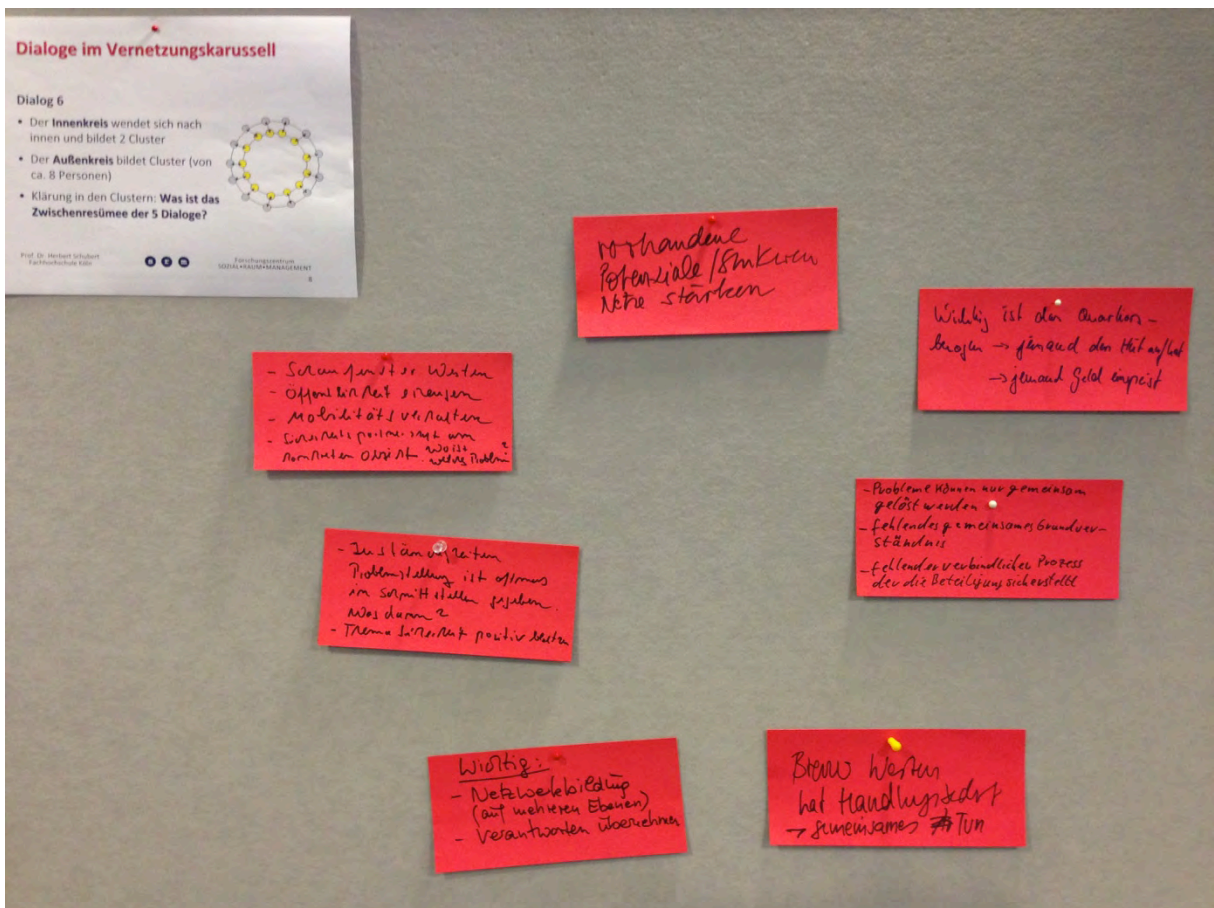 Dialoge im Vernetzungskarussell
Dialog 6
• Der Innenkreis wendet sich nach
innen und bildet 2 Cluster
• Der Außenkreis bildet Cluster (von
ca. 8 Personen)
• Klärung in den Clustern: Was ist das
Zwischenresümee der 5 Dialoge?
Prof. Dr. Herbert Schubert
Fachhochschule Köln
Forschungszentrum
SOZIAL•RAUM•MANAGEMENT
vorhandene
Potenziale/Strukturen
Netze stärken
Wichtig ist den
→ jemand den Hut auf hat
→ jemand Geld
- Schaufenster Westen
- Öffentlichkeit erzeugen
- Mobilitätsverhalten
wo ist
welches Problem?
- Probleme können nur gemeinsam
gelöst werden
- fehlendes gemeinsames Grundver-
ständnis
- fehlender verbindlicher Prozess
der die Beteiligung sicherstellt
- Zuständigkeiten
Problemstellung ist oftmals
in Schnittstellen gegeben.
Was dann?
- Thema Sicherheit positiv besetzen
Wichtig:
- Netzwerkbildung
(auf mehreren Ebenen)
- Verantworten übernehmen
Westen
hat Handlungsbedarf
→ gemeinsames Tun